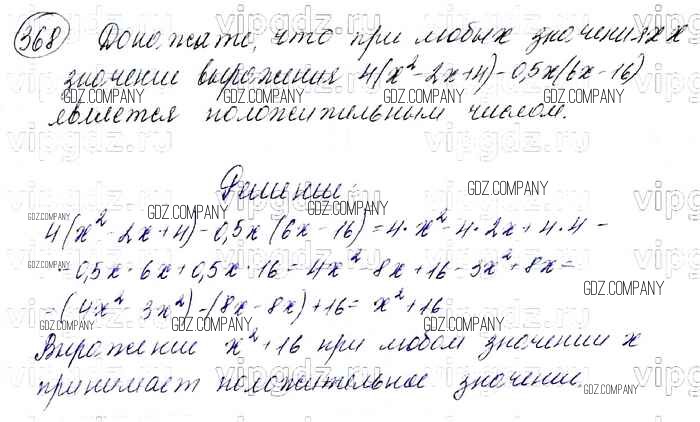 368 Докажите, что при любых значениях x
значение выражения 4(x² - 2x+4) - 0,5x(6x - 16)
является положительным числом.
Решение:
4(x² - 2x+4) - 0,5x(6x - 16) = 4·x² - 4·2x + 4·4 -
- 0,5x·6x + 0,5x·16 = 4x² - 8x + 16 - 3x² + 8x =
= (4x² - 3x²) - (8x - 8x) + 16 = x² + 16
Выражение x² + 16 при любом значении x
принимает положительное значение.
GDZ.COMPANY
vipgdz.ru